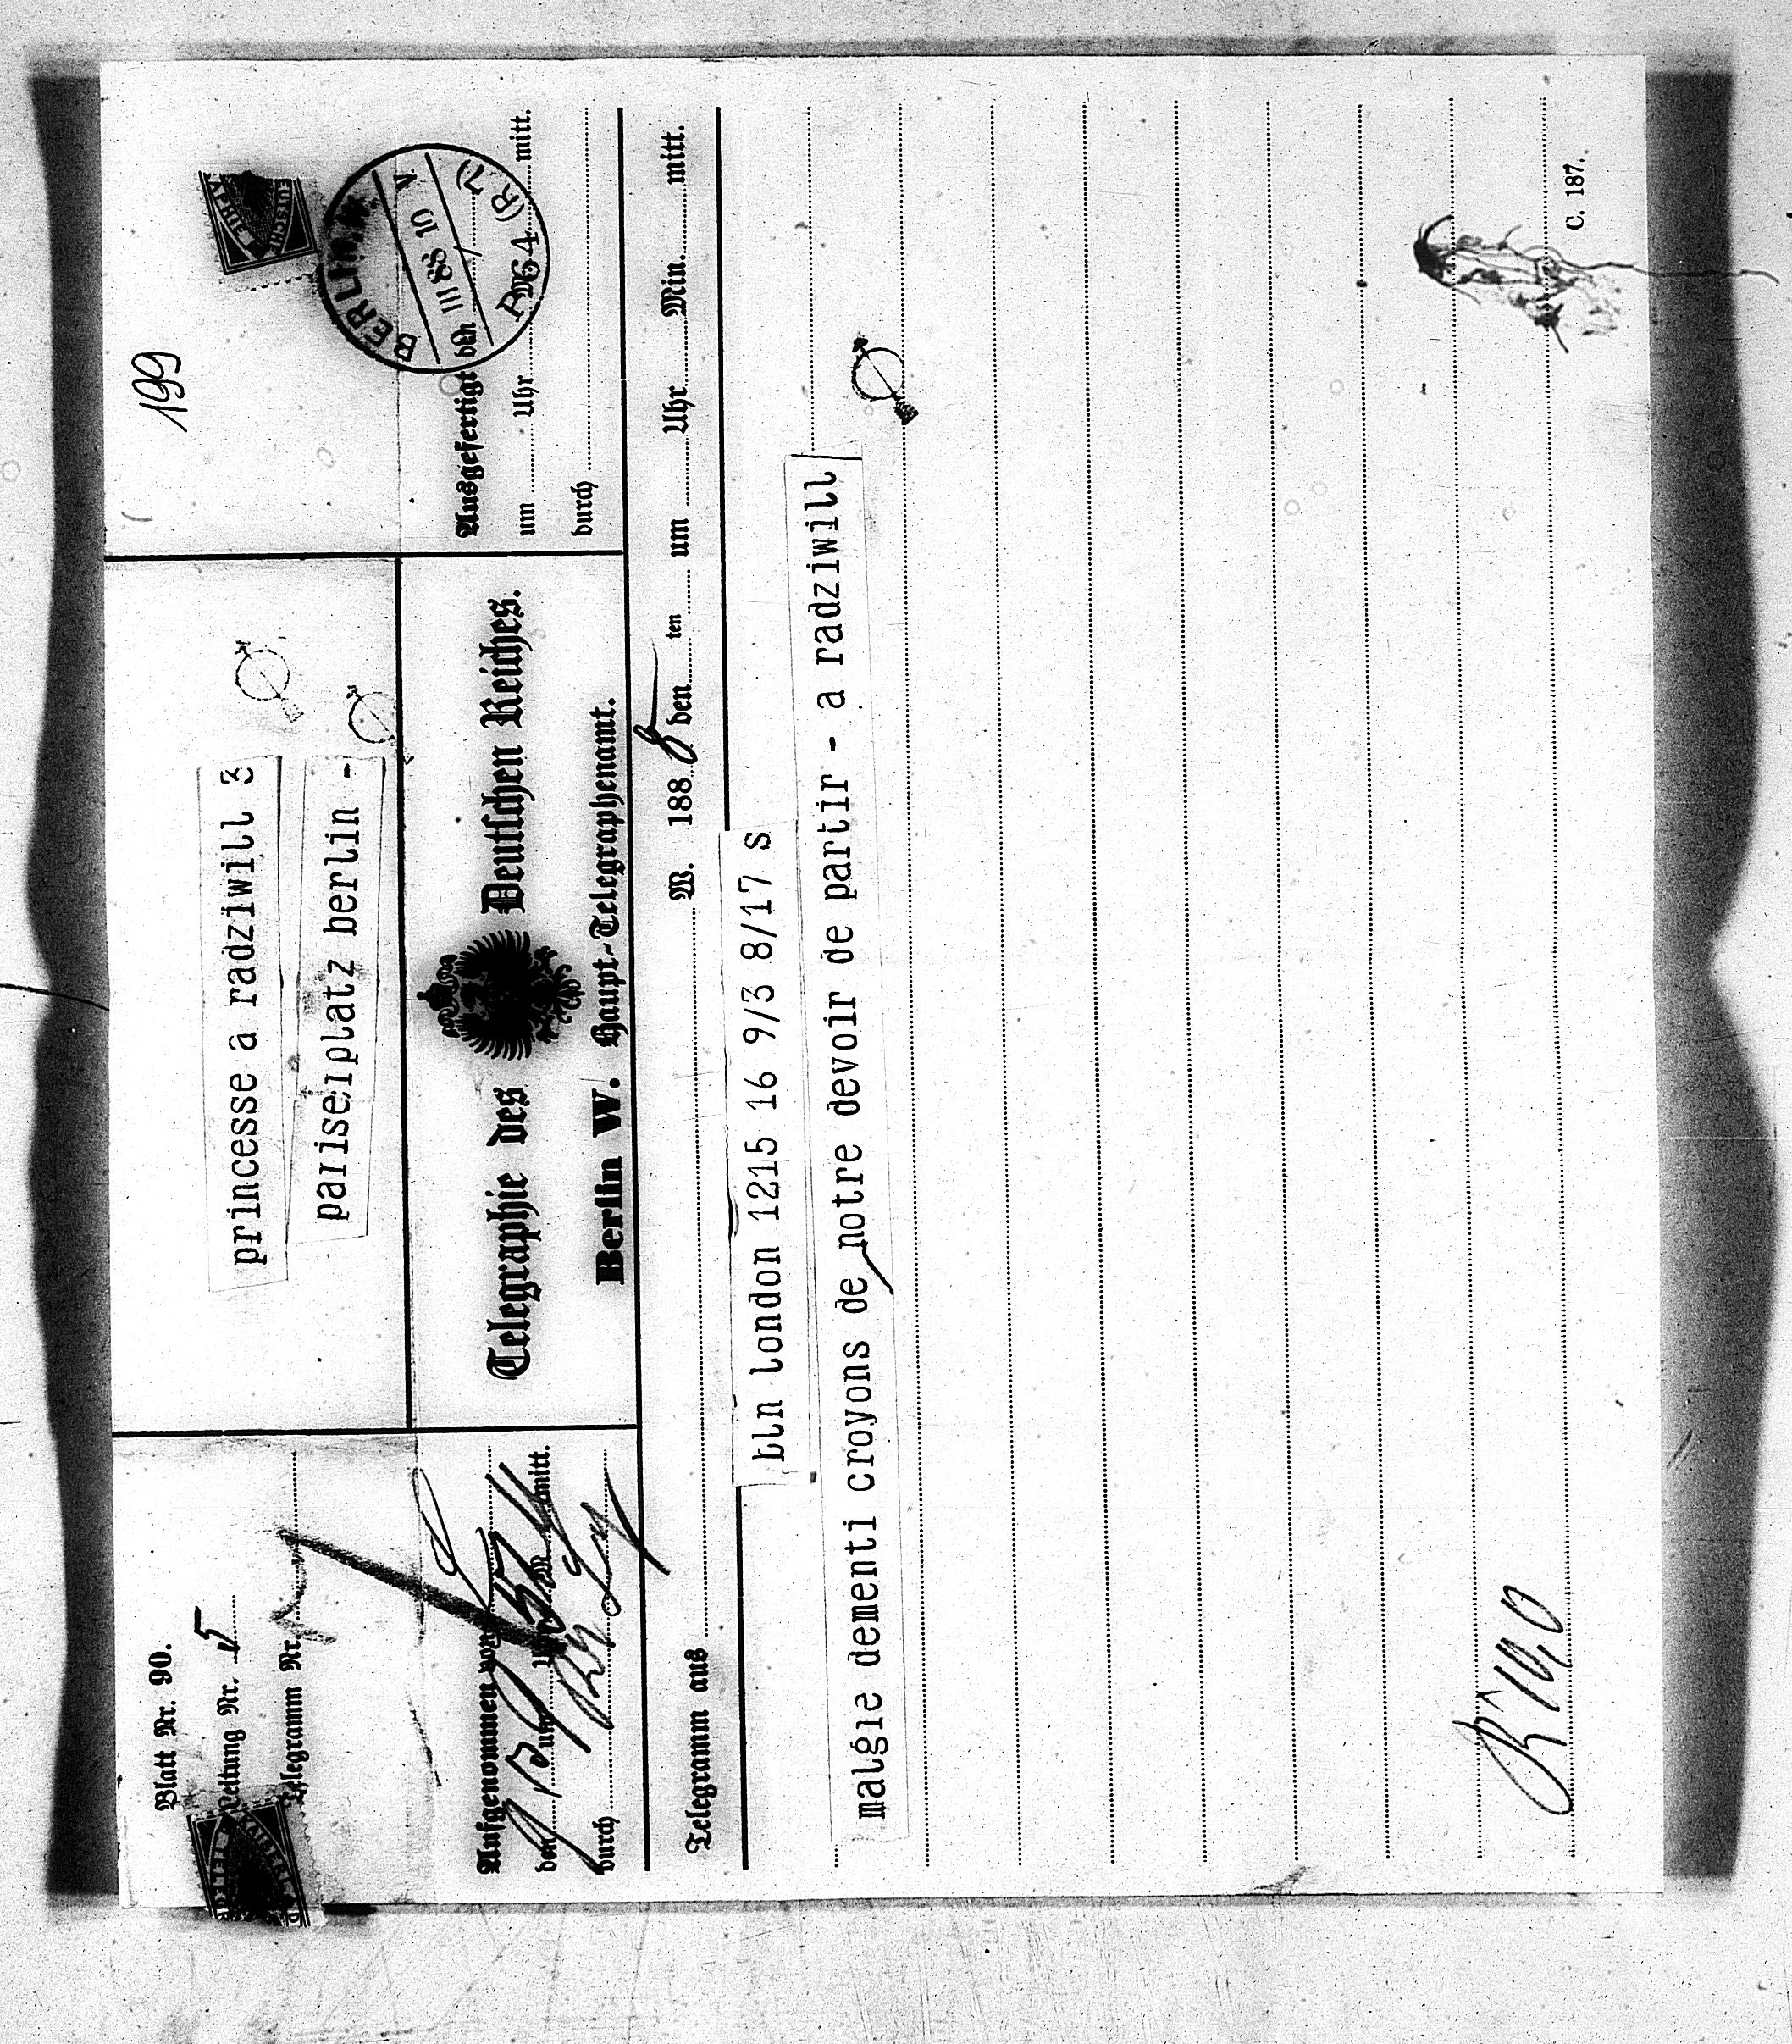 199
Blatt Nr. 90.
Leitung Nr. 5
Telegramm Nr.
princesse a radziwill 3
pariseiplatz berlin -
Aufgenommen von
den
Uhr
M.
mitt.
durch
Telegraphie des Deutschen Reiches.
Berlin W. Haupt-Telegraphenamt.
Ausgefertigt den
um Uhr mitt.
durch
BERLIN,W.
III 88 10 V.
(R 7)
Telegramm aus W. 188 8 den ten um Uhr Min. mitt.
tln london 1215 16 9/3 8/17 s
malgie dementi croyons de notre devoir de partir - a radziwill
C. 187.